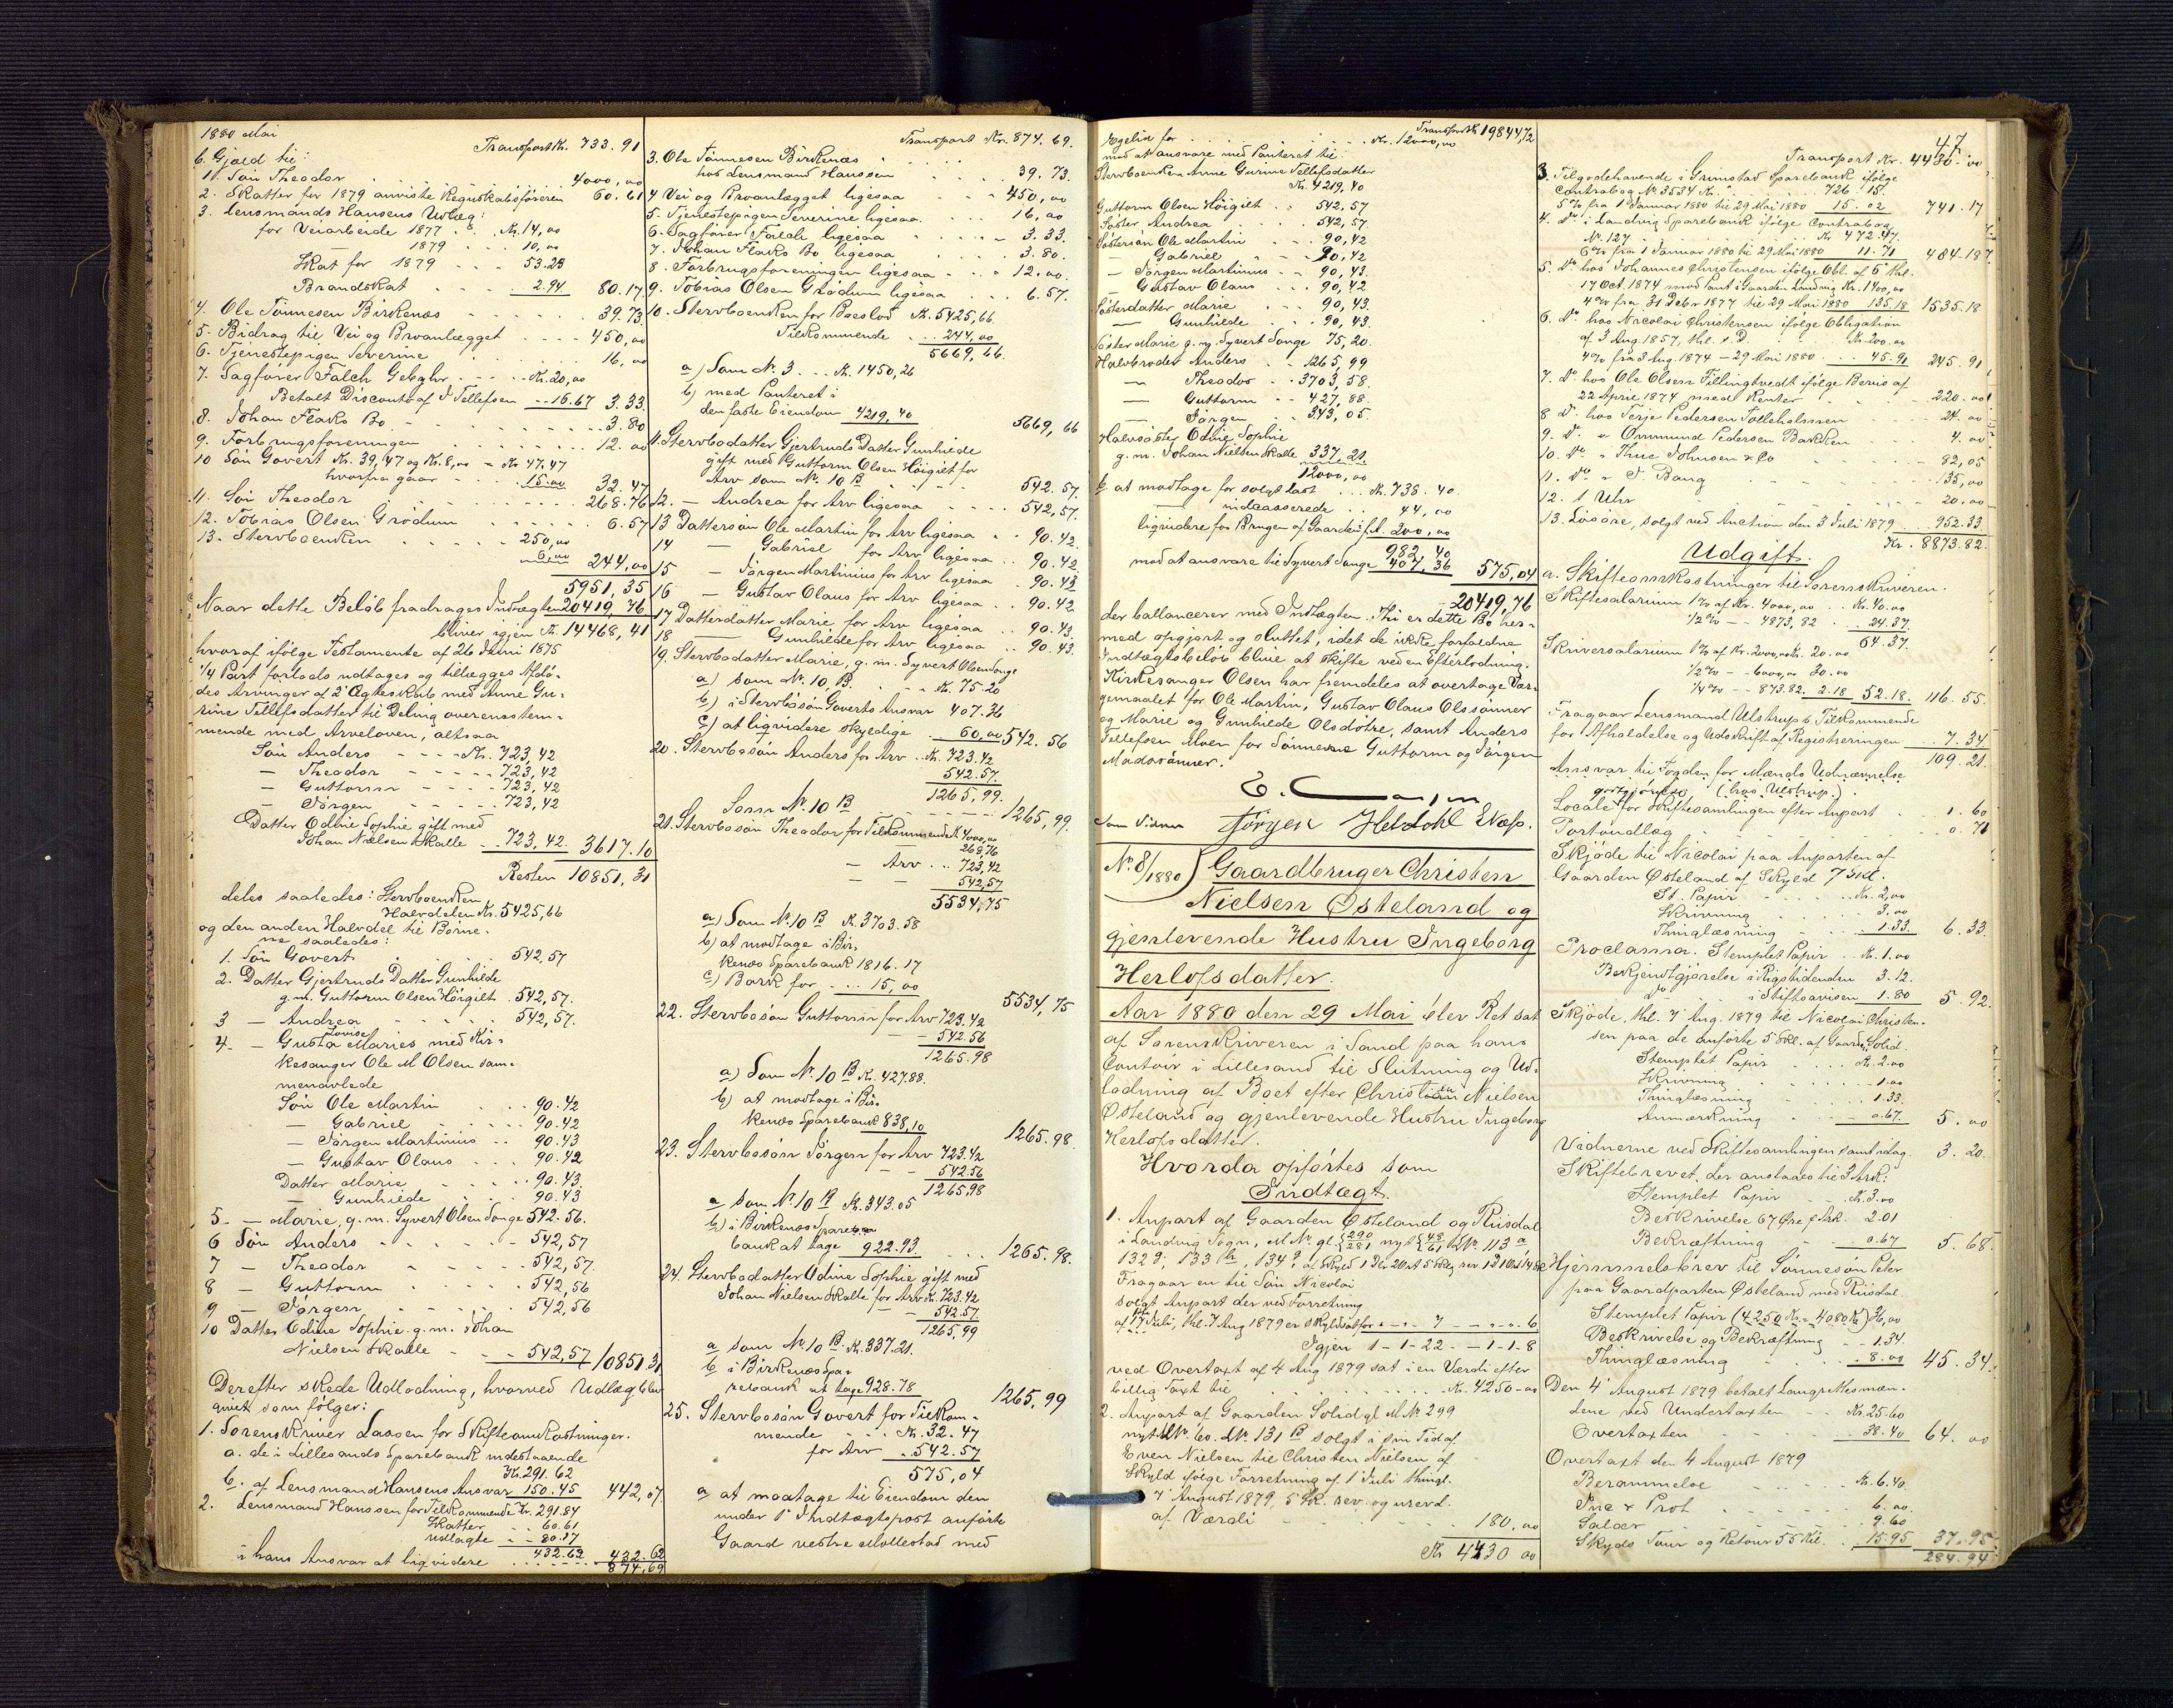 1880 Mai
Transport Kr. 733.91
b. Gjæld til:
1. Søn Theodor 4000,00
2. Skatter for 1879 anviste Regnskabsføreren 60.61
3. Lensmands Hansens Udlæg:
for Veiarbeide 1877 Kr. 14,00
— 1879 10,00
Skat for 1879 53.23
Brandskat 2.94 80.17
4. Ole Tønnesen Birkenæs 39.73
5. Bidrag til Vei og Provanlægget 450,00
6. Tjenestepigen Severine 16,00
7. Sagfører Falch Gebyhr Kr. 20,00
Betalt Disconto af T Tellefsen 16.67 3.33
8. Johan Flaks Bo 3.80
9. Forbrugsforeningen 12.00
10 Søn Govert Kr. 39,47 og Kr. 8,00 = Kr 47.47
hvorfra gaar 15.00 32.47
11. Søn Theodor 268.76
12. Tobias Olsen Grødum 6.57
13. Stervboenken 250,00
6,00 244,00
5951,35
Naar dette Beløb fradrages Indtægten 20419,76
bliver igjen Kr. 14468,41
hvoraf ifølge Testamente af 26 Juni 1875
1/4 Part forlods udtages og tillægges Afdø-
des Arvinger af 2' Ægteskab med Anne Gu-
rine Tellefsdatter til Deling overensstem-
mende med Arveloven, altsaa
Søn Anders Kr. 723,42
— Theodor 723,42
— Guttorm 723,42
— Jørgen 723,42
Datter Odine Sophie gift med
Johan Nielsen Skalle 723,42. 3617.10
Resten 10851,31
deles saaledes: Stervboenken
Halvdelen Kr. 5425,66
og den anden Halvdel til Børne-
ne saaledes:
1. Søn Govert 542,57
2. Datter Gjertruds Datter Gunhilde
g.m. Guttorm Olsen Høigilt 542,57.
3 — Andrea 542,57.
4. — Gusta Lovise Maries med Kir-
kesanger Ole M Olsen sam-
menavlede
Søn Ole Martin 90.42
— Gabriel 90.42
— Jørgen Martinius 90.43
— Gustav Olaus 90.42
Datter Marie 90.43
— Gunhilde 90.43
5. — Marie, g.m. Syvert Olsen Songe 542.56.
6 Søn Anders 542,57
7 — Theodor 542,57.
8 — Guttorm 542,56
9 — Jørgen 542,56
10 Datter Odine Sophie g.m. Johan
Nielsen Skalle 542,57 10851.31
Derefter skede Udlodning, hvorved Udlæg blev
givet som følger:
1. Sorenskriver Laasen for Skifteomkostninger.
a. de i Lillesands Sparebank indestaaende
Kr. 291.62
b. af Lensmand Hansens Ansvar 150.45 442,07
2. Lensmand Hanssen for Tilkommende Kr. 291.84
Skatter 60.61
udlagte 80.17
432.62 432.62
i hans Ansvar at liqvidere 874,69
Transport Kr. 874.69.
3. Ole Tønnesen Birkenæs
hos Lensmand Hanssen 39.73.
4 Vei og Provanlægget ligesaa 450,00
5. Tjenestepigen Severine ligesaa. 16,00
6. Sagfører Falch ligesaa 3.33.
7. Johan Flaks Bo ligesaa 3.80.
8. Forbrugsforeningen ligesaa 12,00.
9. Tobias Olsen Grødum ligesaa 6.57.
10. Stervboenken for Boeslod Kr. 5425,66.
Tilkommende 244,00
5669,66.
a) Som Nr. 3 Kr. 1450,26
b) med Panteret i
den faste Eiendom 4219,40 5669,66
11. Stervbodatter Gjertruds Datter Gunhilde
gift med Guttorm Olsen Høigilt for
Arv som Nr. 10 B 542.57.
12. — Andrea for Arv ligesaa 542,57.
13 Dattersøn Ole Martin for Arv ligesaa 90.42.
14 — Gabriel for Arv ligesaa 90.42
15 — Jørgen Martinius for Arv ligesaa 90.43
16 — Gustav Olaus for Arv ligesaa 90.42.
17 Datterdatter Marie for Arv ligesaa 90.43.
18 — Gunhilde for Arv ligesaa 90.43.
19. Stervbodatter Marie, g.m. Syvert Olsen Songe
a) som Nr. 10 B. Kr. 75.20
b) i Stervbosøn Goverts Ansvar 407.36
c) at liqvidere skyldige 60,00 542.56
20. Stervbosøn Anders for Arv Kr. 723.42
542.57.
1265,99.
Som Nr. 10 B 1265,99.
21. Stervbosøn Theodor for Tilkommende Kr. 4000,00
268.76
— Arv 723,42
— — 542,57
5534,75
a) Som Nr. 10 B Kr. 3703.58
b) at modtage i Bir-
kenæs Sparebank 1816.17
c) Bark for 15,00 5534,75
22. Stervbosøn Guttorm for Arv 723.42
542.56
1265.98
a) Som Nr. 10 B Kr. 427.88.
b) at modtage i Bir-
kenæs Sparebank 838,10 1265.98
23. Stervbosøn Jørgen for Arv 723.42
542.56
1265,98
a som Nr. 10 B Kr. 343.05
b) i Birkenæs Spare-
bank at tage 922.93. 1265.98.
24. Stervbodatter Odine Sophie gift med
Johan Nielsen Skalle for Arv Kr. 723.42
542.57.
1265,99
a som Nr. 10 B Kr. 337.21.
b i Birkenæs Spa-
rebank at tage 928.78 1265,99
25. Stervbosøn Govert for Tilkom-
mende Kr. 32.47
for Arv 542.57
575,04
a at modtage til Eiendom den
under 1' Indtægtspost anførte
Gaard vestre Mollestad med
Transport Kr. 19844,72
Kr. 12000,00
med at ansvare med Panteret til:
Stervboenken Anne Gurine Tellefsdatter
Kr. 4219,40
Guttorm Olsen Høigilt 542.57
Søster Andrea 542,57.
Søstersøn Ole Martin 90,42
— Gabriel 90,42
— Jørgen Martinius 90,43.
— Gustav Olaus 90,42
Søsterdatter Marie 90,43.
— Gunhilde 90,43.
Søster Marie g.m. Syvert Songe 75,20.
Halvbroder Anders 1265,99
— Theodor 3703,58.
— Guttorm 427,88.
— Jørgen 343,05.
Halvsøster Odine Sophie
g.m. Johan Nielsen Skalle 337,21.
12000,00
b. at modtage for solgt Last Kr. 738.40
— indcasserede 44,00
liqvidere for Brugen af Gaarden 200,00
982,40
med at ansvare til Syvert Songe 407,36 575,04
20419,76
der ballancerer med Indtægten. Thi er dette Bo her-
med opgjort og sluttet, idet de ikke forfaldne
Indtægtsbeløb blive at skifte ved en Efterlodning.
Kirkesanger Olsen har fremdeles at overtage Vær-
gemaalet for Ole Martin, Gustav Olaus Olssønner
og Marie og Gunhilde Olsdøtre, samt Anders
Tellefsen Moen for Sønnerne Guttorm og Jørgen
Madssønner.
Som Vidner Jørgen Heldahl
No. 8/1880) Gaardbruger Christen
Nielsen Østeland og
gjenlevende Hustru Ingeborg
Herlofsdatter.
Aar 1880 den 29 Mai blev Ret sat
af Sorenskriveren i Sand paa hans
Contoir i Lillesand til Slutning og Ud-
lodning af Boet efter Christen Nielsen
Østeland og gjenlevende Hustru Ingeborg
Herlofsdatter.
Hvorda opførtes som
Indtægt.
1. Anpart af Gaarden Østeland og Riisdal
i Landvig Sogn, M.Nr. gl. {290/281 nyt {48/61 LNr. 113 a
132 g, 133 b, 134
Fragaar en til Søn Nicolai
solgt Anpart der ved Forretning
af 17 Juli, thl. 7 Aug 1879 er skyldsat for 7 6
Igjen 1-1-22 1-1-8
ved Overtaxt af 4 Aug 1879 sat i en Værdi efter
billig Taxt til Kr. 4250-00
2. Anpart af Gaarden Solid gl MNr 299
nyt MNr. 60. LNr. 131 B solgt i sin Tid af
Even Nielsen til Christen Nielsen af
Skyld ifølge Forretning af 1 Juli thingl.
7 August 1879, 5 Sk. rev. og urevd.
af Værdi 180,00
Kr 4430 00
47
Transport Kr. 4430.00
3. Tilgodehavende i Grimstad Sparebank ifølge
Contrabog Nr. 3534 Kr. 726.15.
5 % fra 1 Januar 1880 til 29 Mai 1880 15.02 741.17
4. Do. i Landvig Sparebank ifølge Contrabog
Nr. 127 Kr 472.47.
6 % fra 1 Januar 1880 til 29 Mai 1880 11.71 484.18
5. Do hos Johannes Christensen ifølge Obl. af 5 thl.
17 Oct. 1874 med Pant i Gaarden Landvig Kr. 1400,00
4 % fra 31 Decbr 1877 til 29 Mai 1880 135.18 1535.18
6. Do hos Nicolai Christensen ifølge Obligation
af 3 Aug. 1857, thl. s.D. Kr. 200.00
4 % fra 3 Aug. 1874 - 29 Mai 1880 45-91 245.91
7. Do hos Ole Olsen Tillingtvedt ifølge Bevis af
22 April 1874 med Renter 220.00
8 Do. hos Terje Pedersen Tolleholmen 24.00
9. Do " Ommund Pedersen Barken 4.00
10. Do " Thue Johnsen & Co 82,05
11. Do " T. Bang 135,00
12. 1 Uhr 20.00
13. Løsøre, solgt ved Auction den 3 Juli 1879 952.33
Kr. 8873.82.
Udgift.
a. Skifteomkostninger til Sorenskriveren.
Skiftesalarium 1 % af Kr. 4000,00 Kr. 40.00
1/2 % — 4873,82 24.37.
64.37.
Skriversalarium 1 % af Kr. 2000,00 Kr. 20.00
1/2 % — 6000,00 30.00
1/4 % — 873.82. 2.18 52.18. 116.55.
Fragaar Lensmand Ulstrups Tilkommende
for Afholdelse og Udskrift af Registreringen 7.34
109.21.
Ansvar til Fogden for Mænds Udnævnelse
(hos Ulstrup.)
Locale for Skiftesamlingen efter Anpart 1.60
Portoudlæg 0.71
Skjøde til Nicolai paa Anparten af
Gaarden Østeland af Skyld 7 Skl.
St. Papir Kr. 2,00
Skrivning 3.00
Thinglæsning 1.33. 6.33.
Proclama. Stemplet Papir Kr. 1.00
Bekjendtgjørelse i Rigstidenden 3.12.
Do i Stiftsavisen 1.80 5.92.
Skjøde, thl. 7 Aug. 1879 til Nicolai Christen-
sen paa de anførte 5 Skl. af Gaarden Solid.
Stemplet Papir Kr. 2.00
Skrivning 1.00
Thinglæsning 1.33
Anmærkning 0.67. 5.00
Vidnerne ved Skiftesamlingen samt idag. 3.20.
Skiftebrevet, der anslaaes til 3 Ark:
Stemplet Papir Kr. 3.00
Beskrivelse 67 Øre p Ark. 2.01
Bekræftning 0.67 5.68.
Hjemmelsbrev til Sønnesøn Peter
paa Gaardparten Østeland med Riisdal.
Stemplet Papir (4250 Kr = 4080 Kr) 36,00
Beskrivelse og Bekræftning 1.34
Thinglæsning 8.00 45.34.
Den 4' August 1879 betalt Laugrettesmæn-
dene ved Undertaxten Kr. 25.60
Overtaxten 38.40 64.00
Overtaxt den 4 August 1879
Berammelse Kr. 6.40.
Inc & Prot 6.00.
Salær 9.60
Skyds Tour og Retour 55 Kil. 15.95 37.95.
284.94